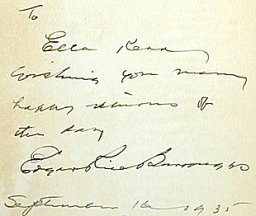 To
Ella Kean
Wishing you many
happy returns of
the day
Edgar Rice Burroughs
September 16 1935